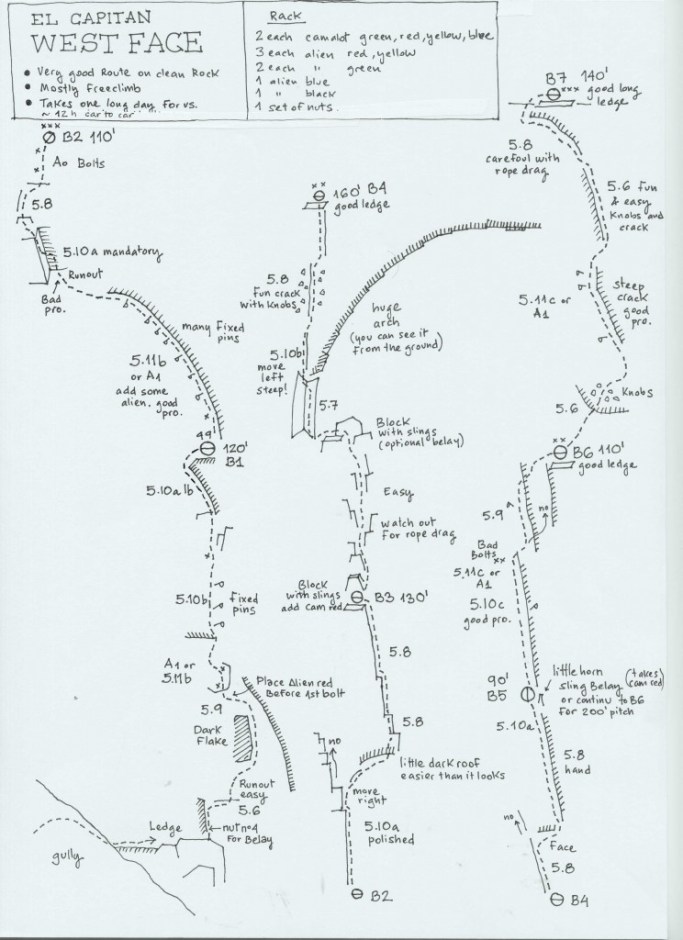 EL CAPITAN
WEST FACE
• Very good Route on clean Rock
• Mostly Freeclimb
• Takes one long day for us.
~ 12 h car to car
Rack
2 each camalot green, red, yellow, blue
3 each alien red, yellow
2 each " green
1 alien blue
1 " black
1 set of nuts.
xxx
B2 110'
A0 Bolts
5.8
5.10a mandatory
Runout
Bad
pro.
many Fixed
pins
5.11b
or A1
add some
alien. good
pro.
120'
B1
5.10a/b
5.10b
Fixed
pins
A1 or
5.11b
Place Alien red
Before 1st bolt
5.9
Dark
Flake
Runout
easy
5.6
Ledge
nut n°4
For Belay
gully
xx
160' B4
good ledge
5.8
Fun crack
with Knobs
huge
arch
(you can see it
from the ground)
5.10b
move
left
steep!
5.7
Block
with slings
(optional belay)
Easy
watch out
For rope drag
Block
with slings
add Cam red
B3 130'
5.8
5.8
no
little dark roof
easier than it looks
move
right
5.10a
polished
B2
B7 140'
xxx good long
ledge
5.8
carefoul with
rope drag
5.6 Fun
& easy
Knobs and
crack
steep
crack
good
pro.
5.11c or
A1
Knobs
5.6
xx
B6 110'
good ledge
5.9
no
Bad
Bolts
xx
5.11c or
A1
5.10c
good pro.
90'
B5
little horn (takes
sling Belay cam red)
or continu to B6
For 200' pitch
5.10a
5.8
hand
no
Face
5.8
B4